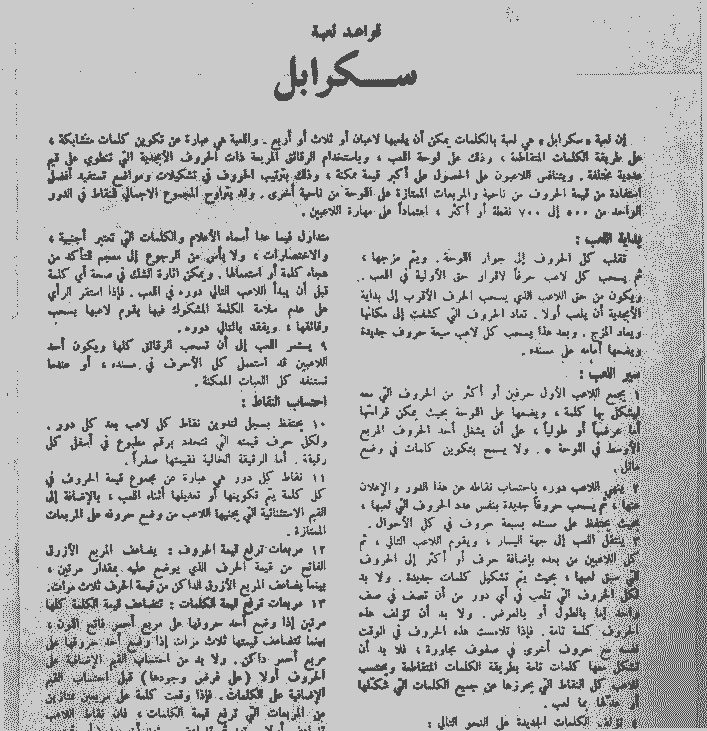 قواعد لعبة
سكرابل
إن لعبة «سكرابل» هي لعبة بالكلمات يمكن أن يلعبها لاعبان أو ثلاث أو أربع . واللعبة هي عبارة عن تكوين كلمات متشابكة ،
على طريقة الكلمات المتقاطعة ، وذلك على لوحة اللعب ، وباستخدام الرقائق المربعة ذات الحروف الأبجدية التي تنطوي على قيم
عددية مختلفة . ويتنافس اللاعبون على الحصول على أكبر قيمة ممكنة ، وذلك بترتيب الحروف في تشكيلات ومواضع تستفيد أفضل
استفادة من قيمة الحروف من ناحية والمربعات الممتازة على اللوحة من ناحية أخرى . وقد يتراوح المجموع الاجمالي للنقاط في الدور
الواحد من ٥٠٠ إلى ٧٠٠ نقطة أو أكثر ، اعتماداً على مهارة اللاعبين .
بداية اللعب :
تقلب كل الحروف إلى جوار اللوحة . ويتم مزجها ،
ثم يسحب كل لاعب حرفاً لاقرار حق الأولية في اللعب .
ويكون من حق اللاعب الذي يسحب الحرف الأقرب إلى بداية
الأبجدية أن يلعب أولا . تعاد الحروف التي كشفت إلى مكانها
ويعاد المزج . وبعد هذا يسحب كل لاعب سبعة حروف جديدة
ويضعها أمامه على مسنده .
سير اللعب :
١ يجمع اللاعب الأول حرفين أو أكثر من الحروف التي معه
ليشكل بها كلمة ، ويضعها على اللوحة بحيث يمكن قراءتها
أما عرضياً أو طولياً ، على أن يشغل أحد الحروف المربع
الأوسط في اللوحة * . ولا يسمح بتكوين كلمات في وضع
مائل .
٢ ينهي اللاعب دوره باحتساب نقاطه عن هذا الدور والإعلان
عنها ، ثم يسحب حروفاً جديدة بنفس عدد الحروف التي لعبها ،
بحيث يحتفظ على مسنده بسبعة حروف في كل الأحوال .
٣ ينتقل اللعب إلى جهة اليسار ، ويقوم اللاعب التالي ، ثم
كل اللاعبين من بعده بإضافة حرف أو أكثر إلى الحروف
التي سبق لعبها ، بحيث يتم تشكيل كلمات جديدة . ولا بد
لكل الحروف التي تلعب في أي دور من أن تصف في صف
واحد إما بالطول أو بالعرض . ولا بد أن تؤلف هذه
الحروف كلمة تامة . فإذا تلامست هذه الحروف في الوقت
نفسه مع حروف أخرى في صفوف مجاورة ، فلا بد أن
تشكل معها كلمات تامة بطريقة الكلمات المتقاطعة ويحتسب
للاعب كل النقاط التي يحرزها عن جميع الكلمات التي شكلها
أو عدلها بما لعب .
٤ تؤلف الكلمات الجديدة على النحو التالي :
متداول فيما عدا أسماء الأعلام والكلمات التي تعتبر أجنبية ،
والاختصارات ، ولا بأس من الرجوع إلى معجم للتأكد من
هجاء كلمة أو استعمالها . ويمكن اثارة الشك في صحة أي كلمة
قبل أن يبدأ اللاعب التالي دوره في اللعب . فإذا استقر الرأي
على عدم سلامة الكلمة المشكوك فيها يقوم لاعبها بسحب
رقائقها ، ويفقد بالتالي دوره .
٩ يستمر اللعب إلى أن تسحب الرقائق كلها ويكون أحد
اللاعبين قد استعمل كل الأحرف في مسنده ، أو عندما
تستنفد كل اللعبات الممكنة .
احتساب النقاط :
١٠ يحتفظ بسجل لتدوين نقاط كل لاعب بعد كل دور .
ولكل حرف قيمته التي تتحدد برقم مطبوع في أسفل كل
رقيقة . أما الرقيقة الخالية فقيمتها صفراً .
١١ نقاط كل دور هي عبارة عن مجموع قيمة الحروف في
كل كلمة يتم تكوينها أو تعديلها أثناء اللعب ، بالإضافة إلى
القيم الاستثنائية التي يجنيها اللاعب من وضع حروفه على المربعات
الممتازة .
١٢ مربعات ترفع قيمة الحروف : يضاعف المربع الأزرق
الفاتح من قيمة الحرف الذي يوضع عليه بمقدار مرتين ،
بينما يضاعف المربع الأزرق الداكن من قيمة الحرف ثلاث مرات.
١٣ مربعات ترفع قيمة الكلمات : تتضاعف قيمة الكلمة كلها
مرتين إذا وضع أحد حروفها على مربع أحمر فاتح اللون ،
بينما تتضاعف قيمتها ثلاث مرات إذا وضع أحد حروفها على
مربع أحمر داكن . ولا بد من احتساب القيم الإضافية على
الحروف أولا (على فرض وجودها) قبل احتساب القيم
الإضافية على الكلمات . فإذا وقعت كلمة على مربعين ممتازين
من المربعات التي ترفع قيمة الكلمات ، فان نقاط اللاعب